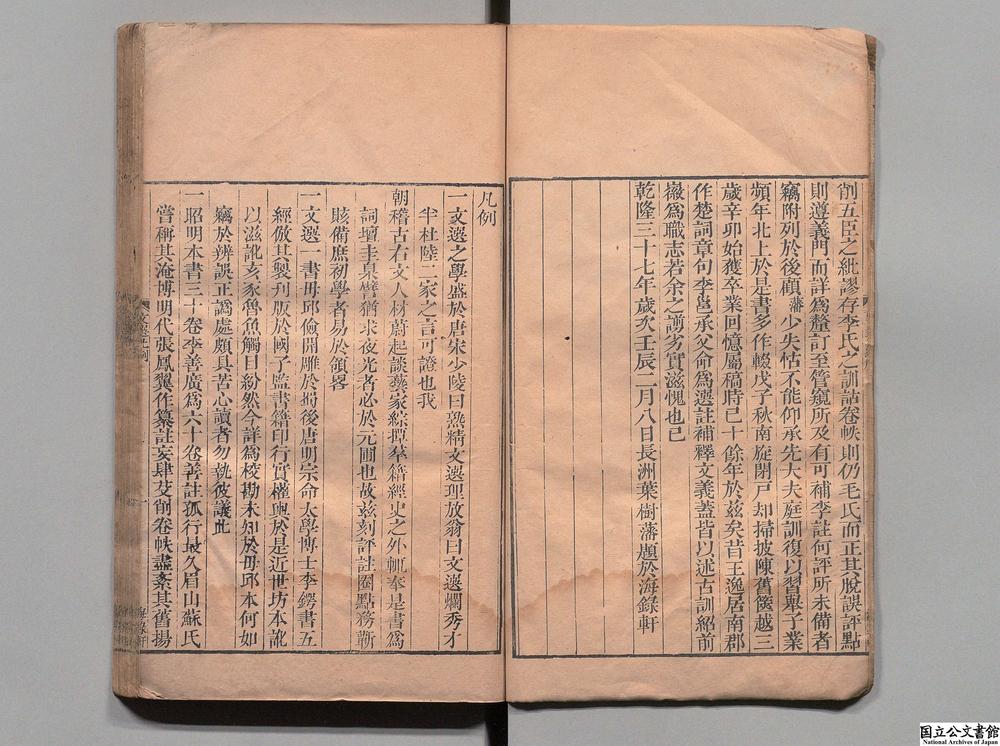 削五臣之紕謬存李氏之訓詁卷帙則仍毛氏而正其脫誤評點
則遵義門而詳爲釐訂至管窺所及有可補李註何評所未備者
竊附列於後顧藩少失怙不能仰承先大夫庭訓復以習舉子業
頻年北上於是書多作輟戊子秋南旋閉戸却掃披陳舊篋越三
歲辛卯始獲卒業回憶屬稿時已十餘年於茲矣昔王逸居南郡
作楚詞章句李邕承父命爲選註補釋文義蓋皆以述古訓紹前
徽爲職志若余之謭劣實滋愧也已
乾隆三十七年歲次壬辰二月八日長洲葉樹藩題於海錄軒
凡例
一文選之學盛於唐宋少陵曰熟精文選理放翁曰文選爛秀才
半杜陸二家之言可證也我
朝稽古右文人材蔚起談藝家綜撢羣籍經史之外輒奉是書爲
詞壇圭臬譬猶求夜光者必於元圃也故茲刻評註圈點務蘄
賅備庶初學者易於領畧
一文選一書毋邱儉開雕於蜀後唐明宗命太學博士李鍔書五
經倣其製刋版於國子監書籍印行實權輿於是近世坊本訛
以滋訛亥豕魯魚觸目紛然今詳爲校勘未知於毋邱本何如
竊於辨誤正譌處頗具苦心讀者勿執彼議此
一昭明本書三十卷李善廣爲六十卷善註孤行最久眉山蘇氏
嘗稱其淹博明代張鳳翼作纂註妄肆芟削卷帙盡紊其舊揚
海錄軒